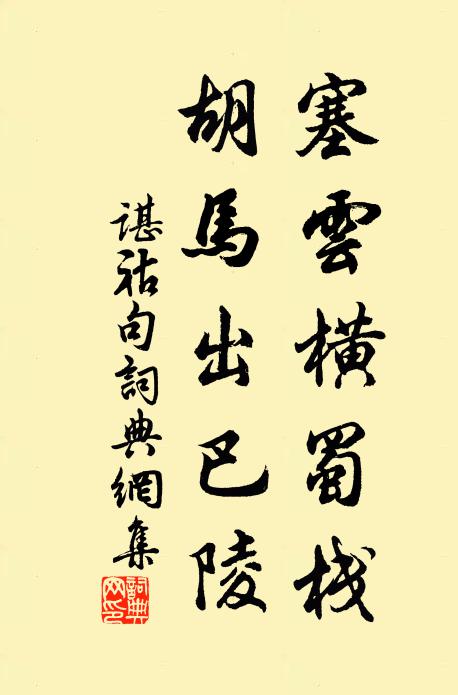 塞雲橫蜀栈
胡馬出巴陵
諶祜句詞典網集